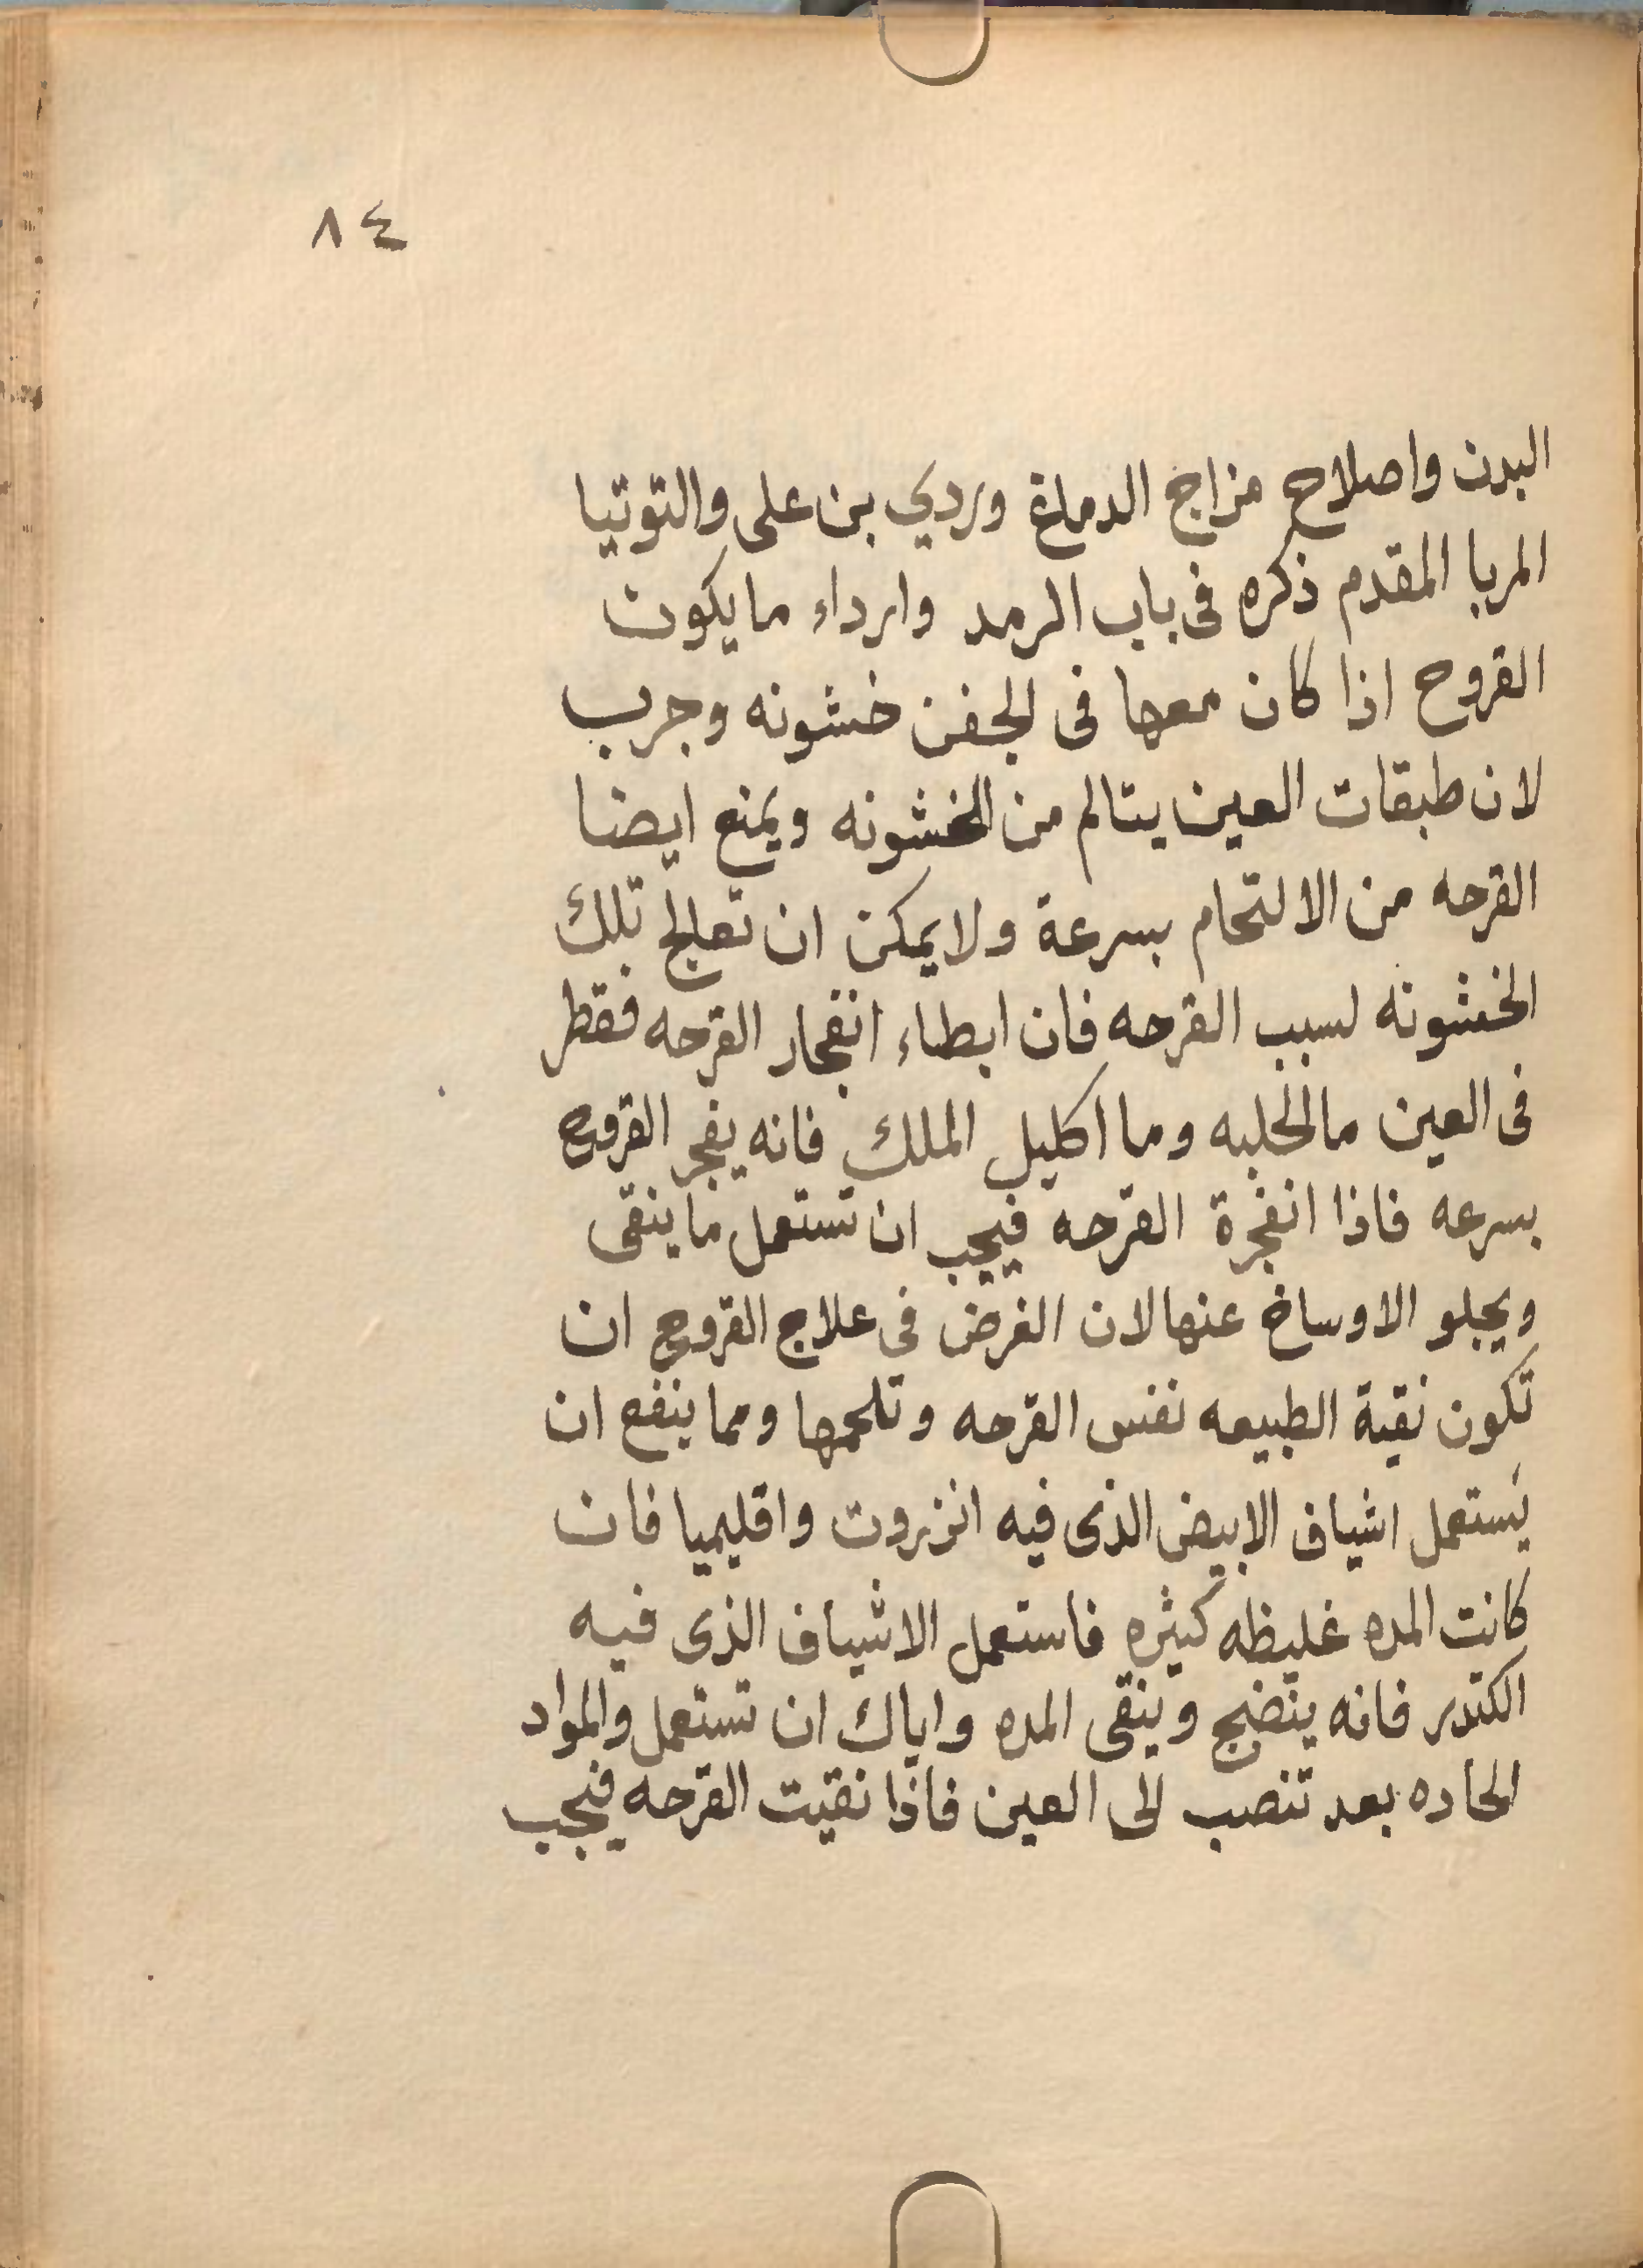 ٨٤
البدن واصلاح مزاج الدماغ وردي بن على والتوتيا
المربا المقدم ذكره فى باب الرمد وارداء ما يكون
القروح اذا كان معها فى الجفن خشونه وجرب
لان طبقات العين يتالم من الخشونه ويمنع ايضا
القرحه من الالتحام بسرعة ولا يمكن ان تعالج تلك
الخشونه لسبب القرحه فان ابطاء انفجار القرحه فقطر
فى العين ما الحلبه وما اكليل الملك فانه يفجر القروح
بسرعه فاذا انفجرة القرحه فيجب ان تستعمل ما ينقى
ويجلو الاوساخ عنها لان الغرض فى علاج القروح ان
تكون نقية الطبيعه نفس القرحه وتلحمها ومما ينفع ان
يستعمل اشياف الابيض الذى فيه انزروت واقليميا فان
كانت المده غليظه كثيره فاستعمل الاشياف الذى فيه
الكندر فانه ينضج وينقى المده واياك ان تستعمل والمواد
الحاده بعد تنصب الى العين فاذا نقيت القرحه فيجب